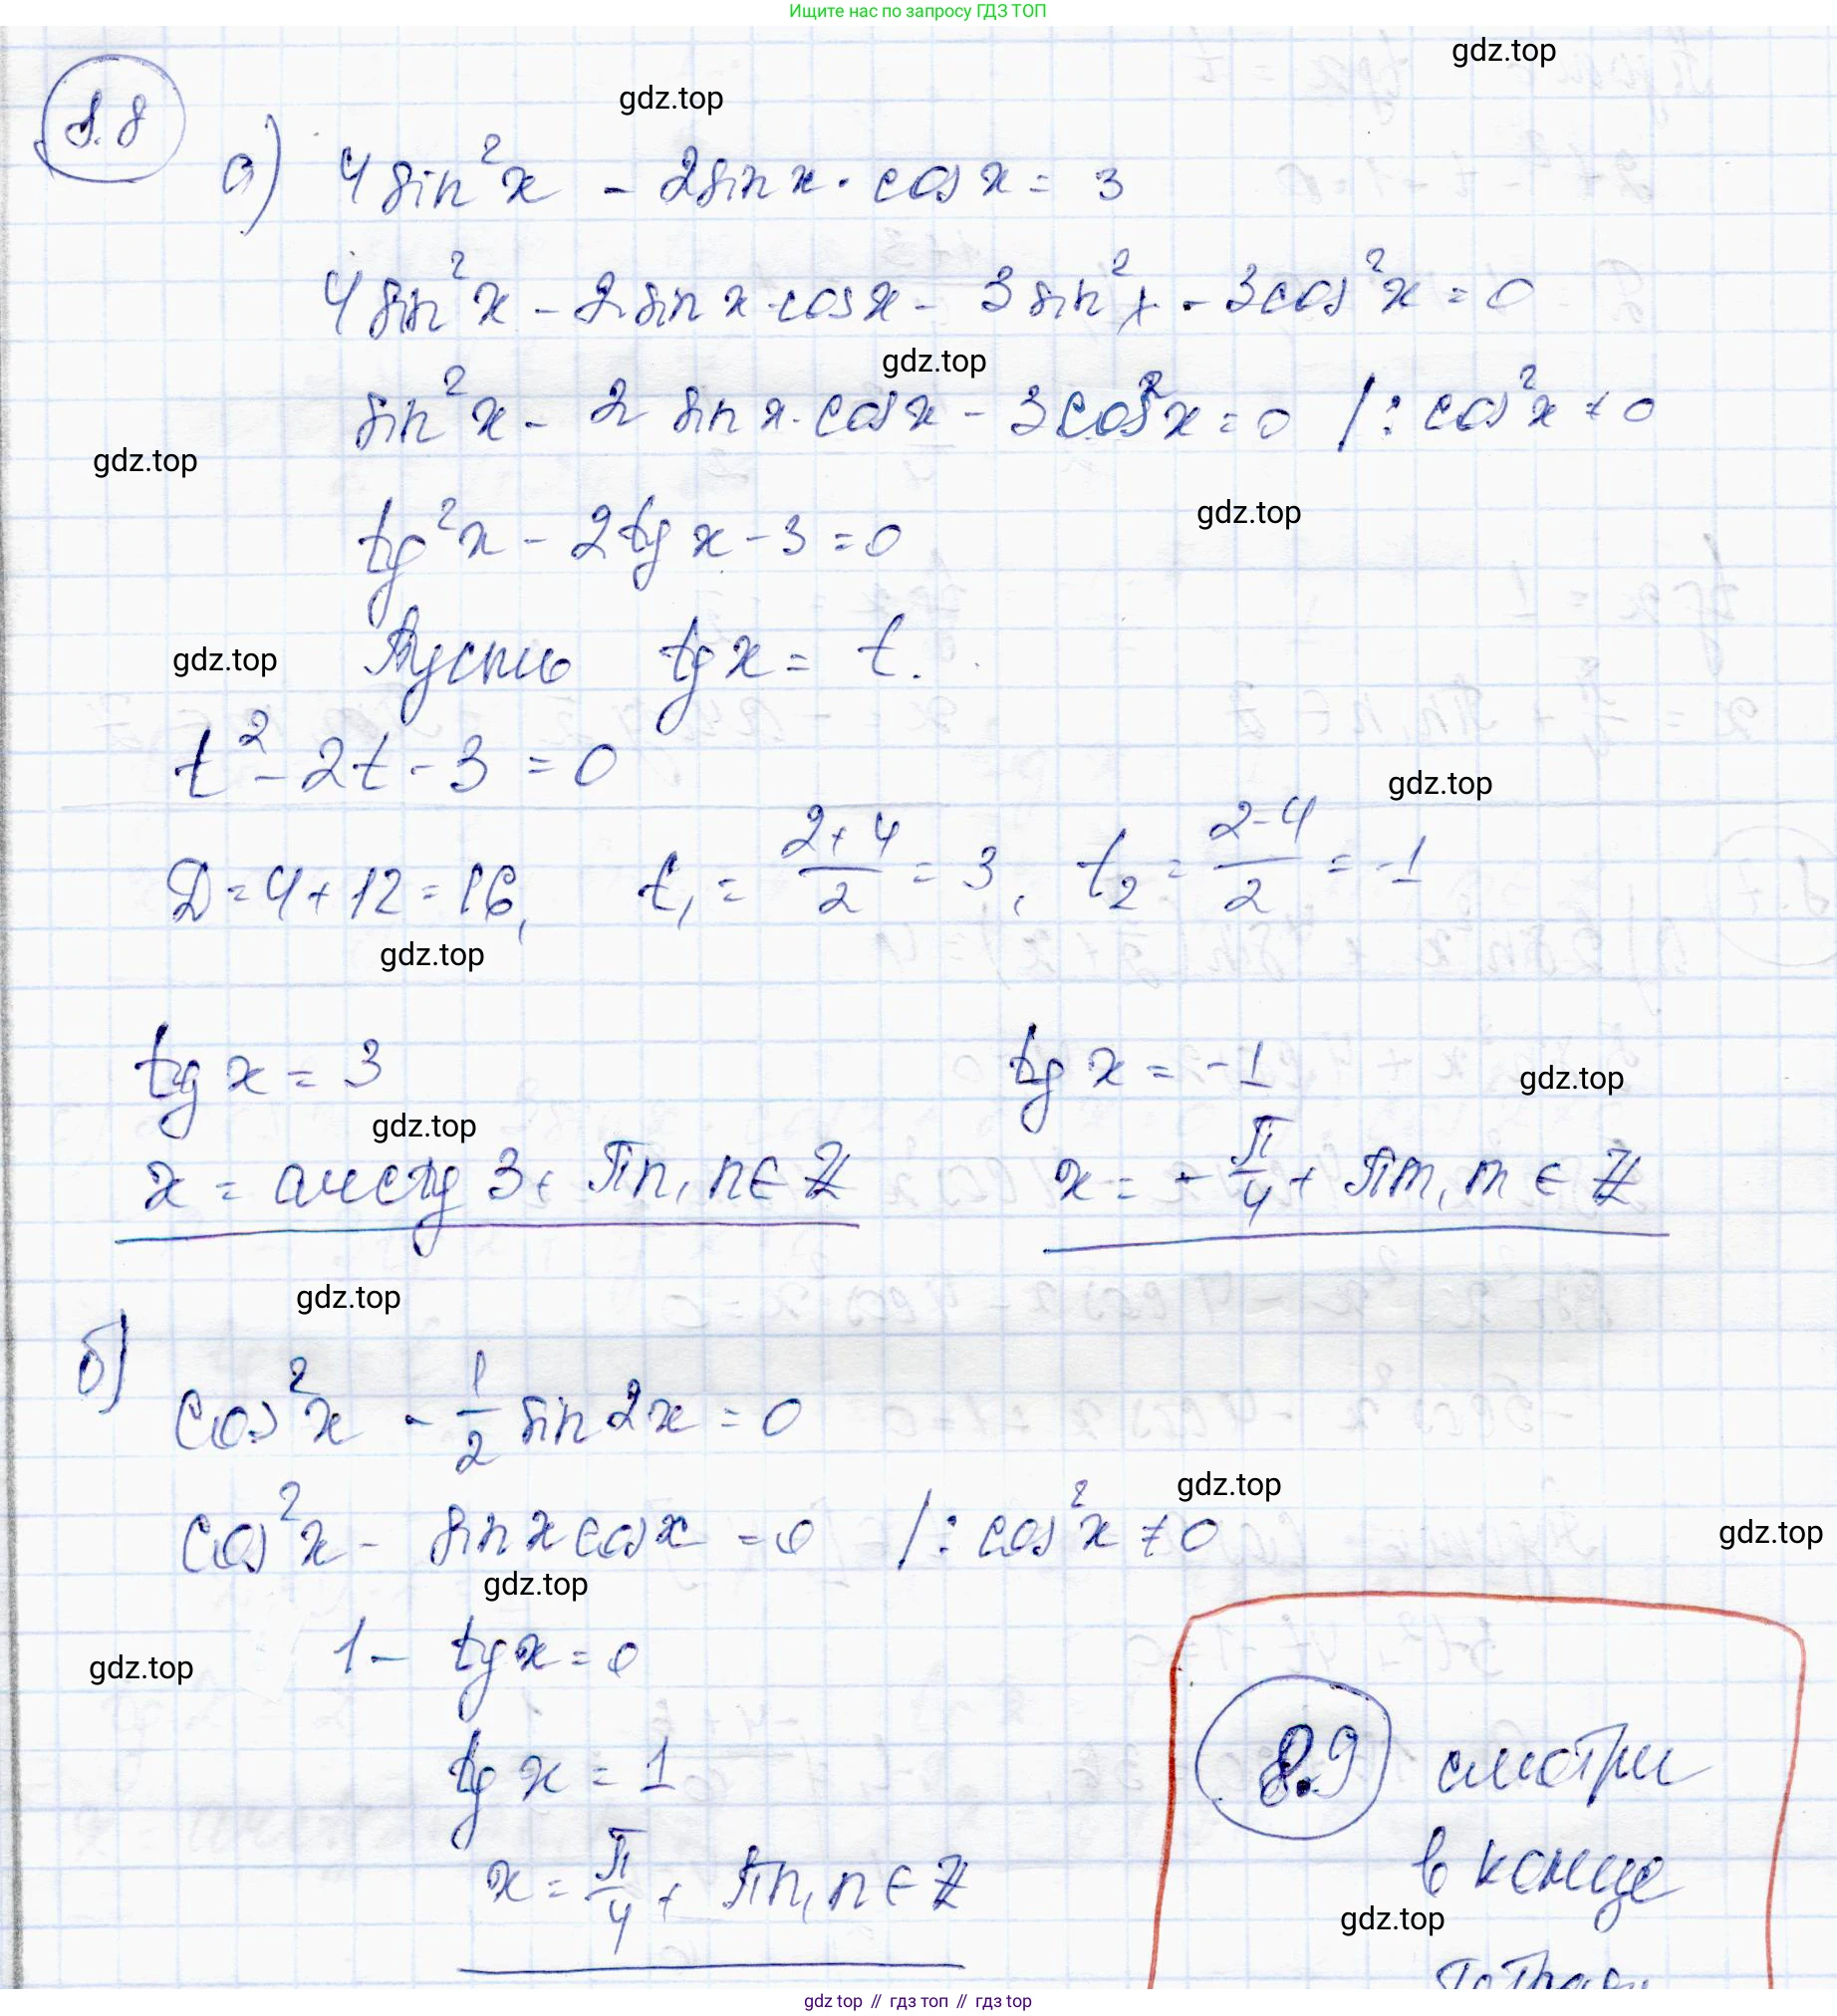 Ищите нас по запросу ГДЗ ТОП
gdz.top
gdz.top
8.8
а) 4 sin²x - 2 sin x · cos x = 3
4 sin²x - 2 sin x · cos x - 3 sin²x - 3 cos²x = 0
gdz.top
sin²x - 2 sin x · cos x - 3 cos²x = 0 / : cos²x ≠ 0
gdz.top
gdz.top
tg²x - 2 tg x - 3 = 0
gdz.top
Пусть tg x = t.
t² - 2t - 3 = 0
gdz.top
D = 4 + 12 = 16, t₁ = (2+4)/2 = 3, t₂ = (2-4)/2 = -1
gdz.top
tg x = 3 tg x = -1
gdz.top
gdz.top
x = arctg 3 + πn, n ∈ Z x = - π/4 + πm, m ∈ Z
gdz.top
б)
cos²x - 1/2 sin 2x = 0
gdz.top
cos²x - sin x cos x = 0 / : cos²x ≠ 0
gdz.top
gdz.top
1 - tg x = 0
gdz.top
tg x = 1
8.9 смотри
в конце
x = π/4 + πn, n ∈ Z
gdz.top
gdz top // гдз топ // gdz top